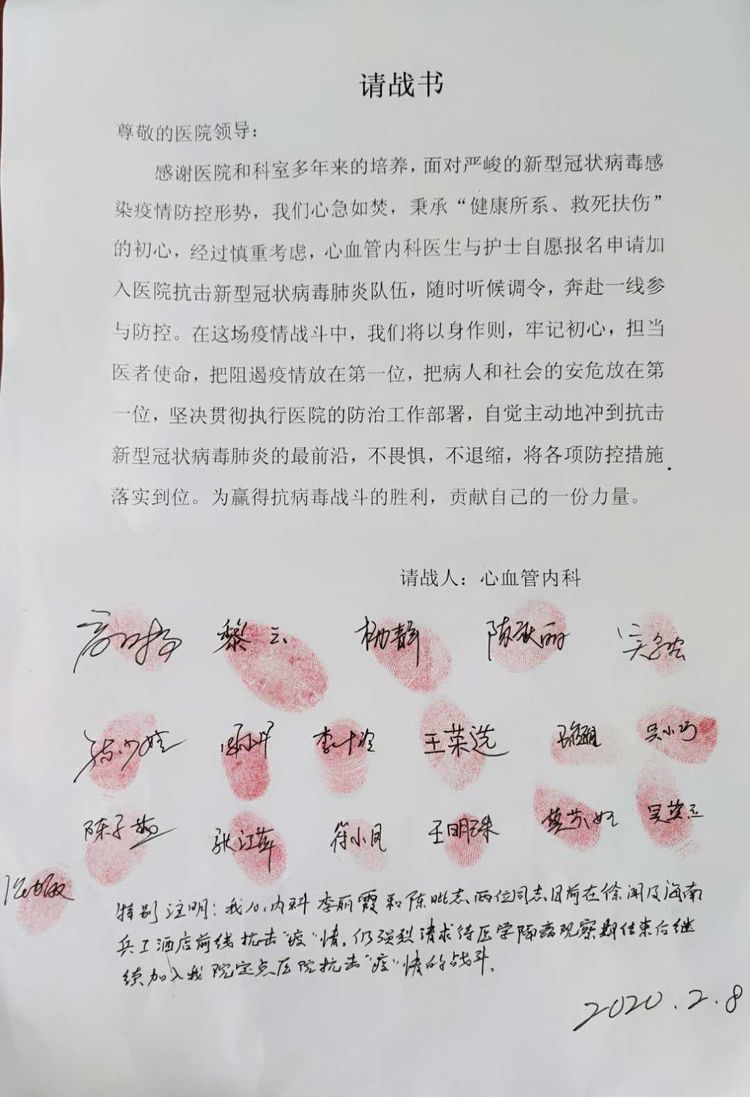 请战书
尊敬的医院领导：
感谢医院和科室多年来的培养，面对严峻的新型冠状病毒感
染疫情防控形势，我们心急如焚，秉承“健康所系、救死扶伤”
的初心，经过慎重考虑，心血管内科医生与护士自愿报名申请加
入医院抗击新型冠状病毒肺炎队伍，随时听候调令，奔赴一线参
与防控。在这场疫情战斗中，我们将以身作则，牢记初心，担当
医者使命，把阻遏疫情放在第一位，把病人和社会的安危放在第
一位，坚决贯彻执行医院的防治工作部署，自觉主动地冲到抗击
新型冠状病毒肺炎的最前沿，不畏惧，不退缩，将各项防控措施
落实到位。为赢得抗病毒战斗的胜利，贡献自己的一份力量。
请战人：心血管内科
黎云 杨静
王荣选 吴小巧
张江萍 符小凤 王明珠
特别注明：我心内科李丽霞和陈 志两位同志目前在徐闻及海南
兵工酒店前线抗击“疫”情，仍强烈请求待医学隔离观察期结束后继
续加入我院定点医院抗击“疫”情的战斗。
2020.2.8